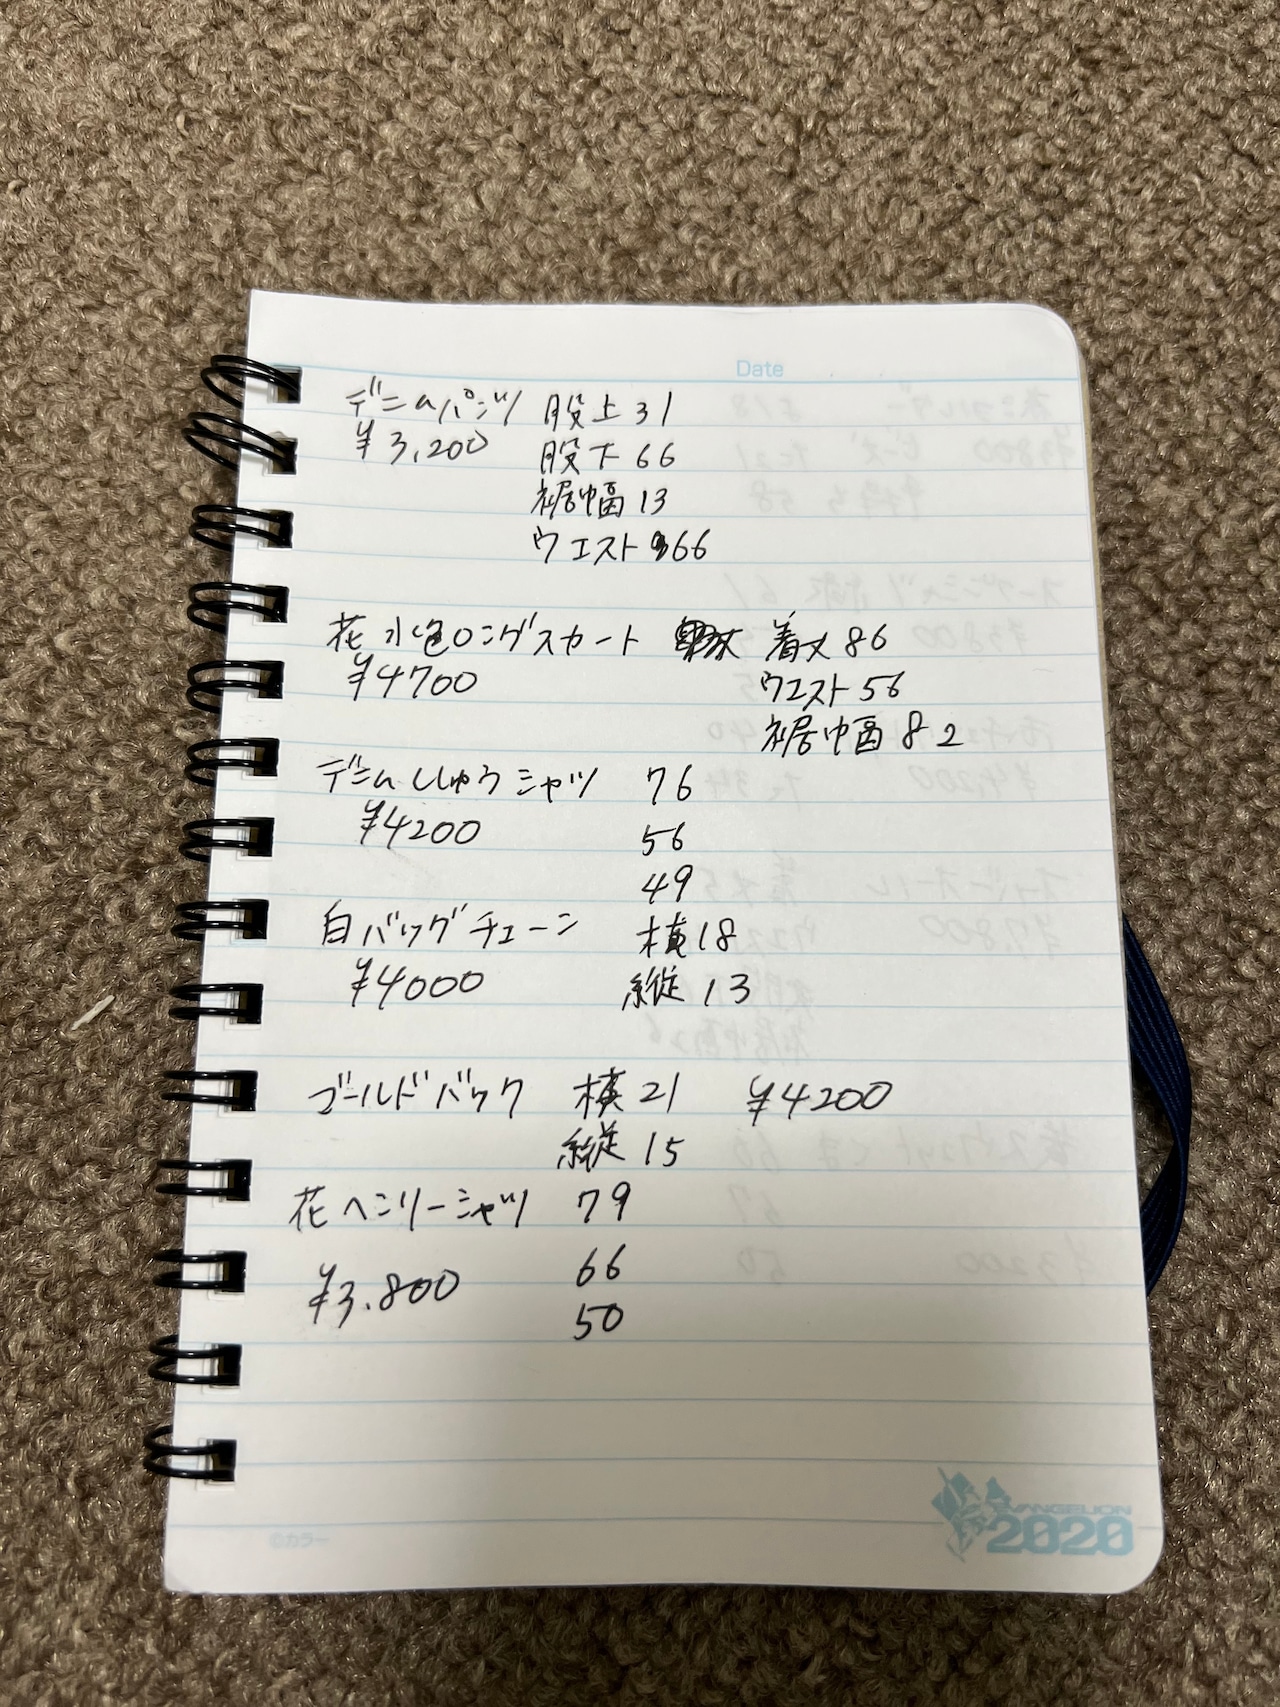 Date
デニムパンツ 股上31
¥3,200 股下66
裾幅13
ウエスト66
花水色ロングスカート 着丈86
¥4700 ウエスト56
裾幅82
デニムししゅうシャツ 76
¥4200 56
49
白バッグチェーン 横18
¥4000 縦13
ゴールドバック 横21 ¥4200
縦15
花ヘンリーシャツ 79
¥3.800 66
50
EVANGELION
2020
©カラー